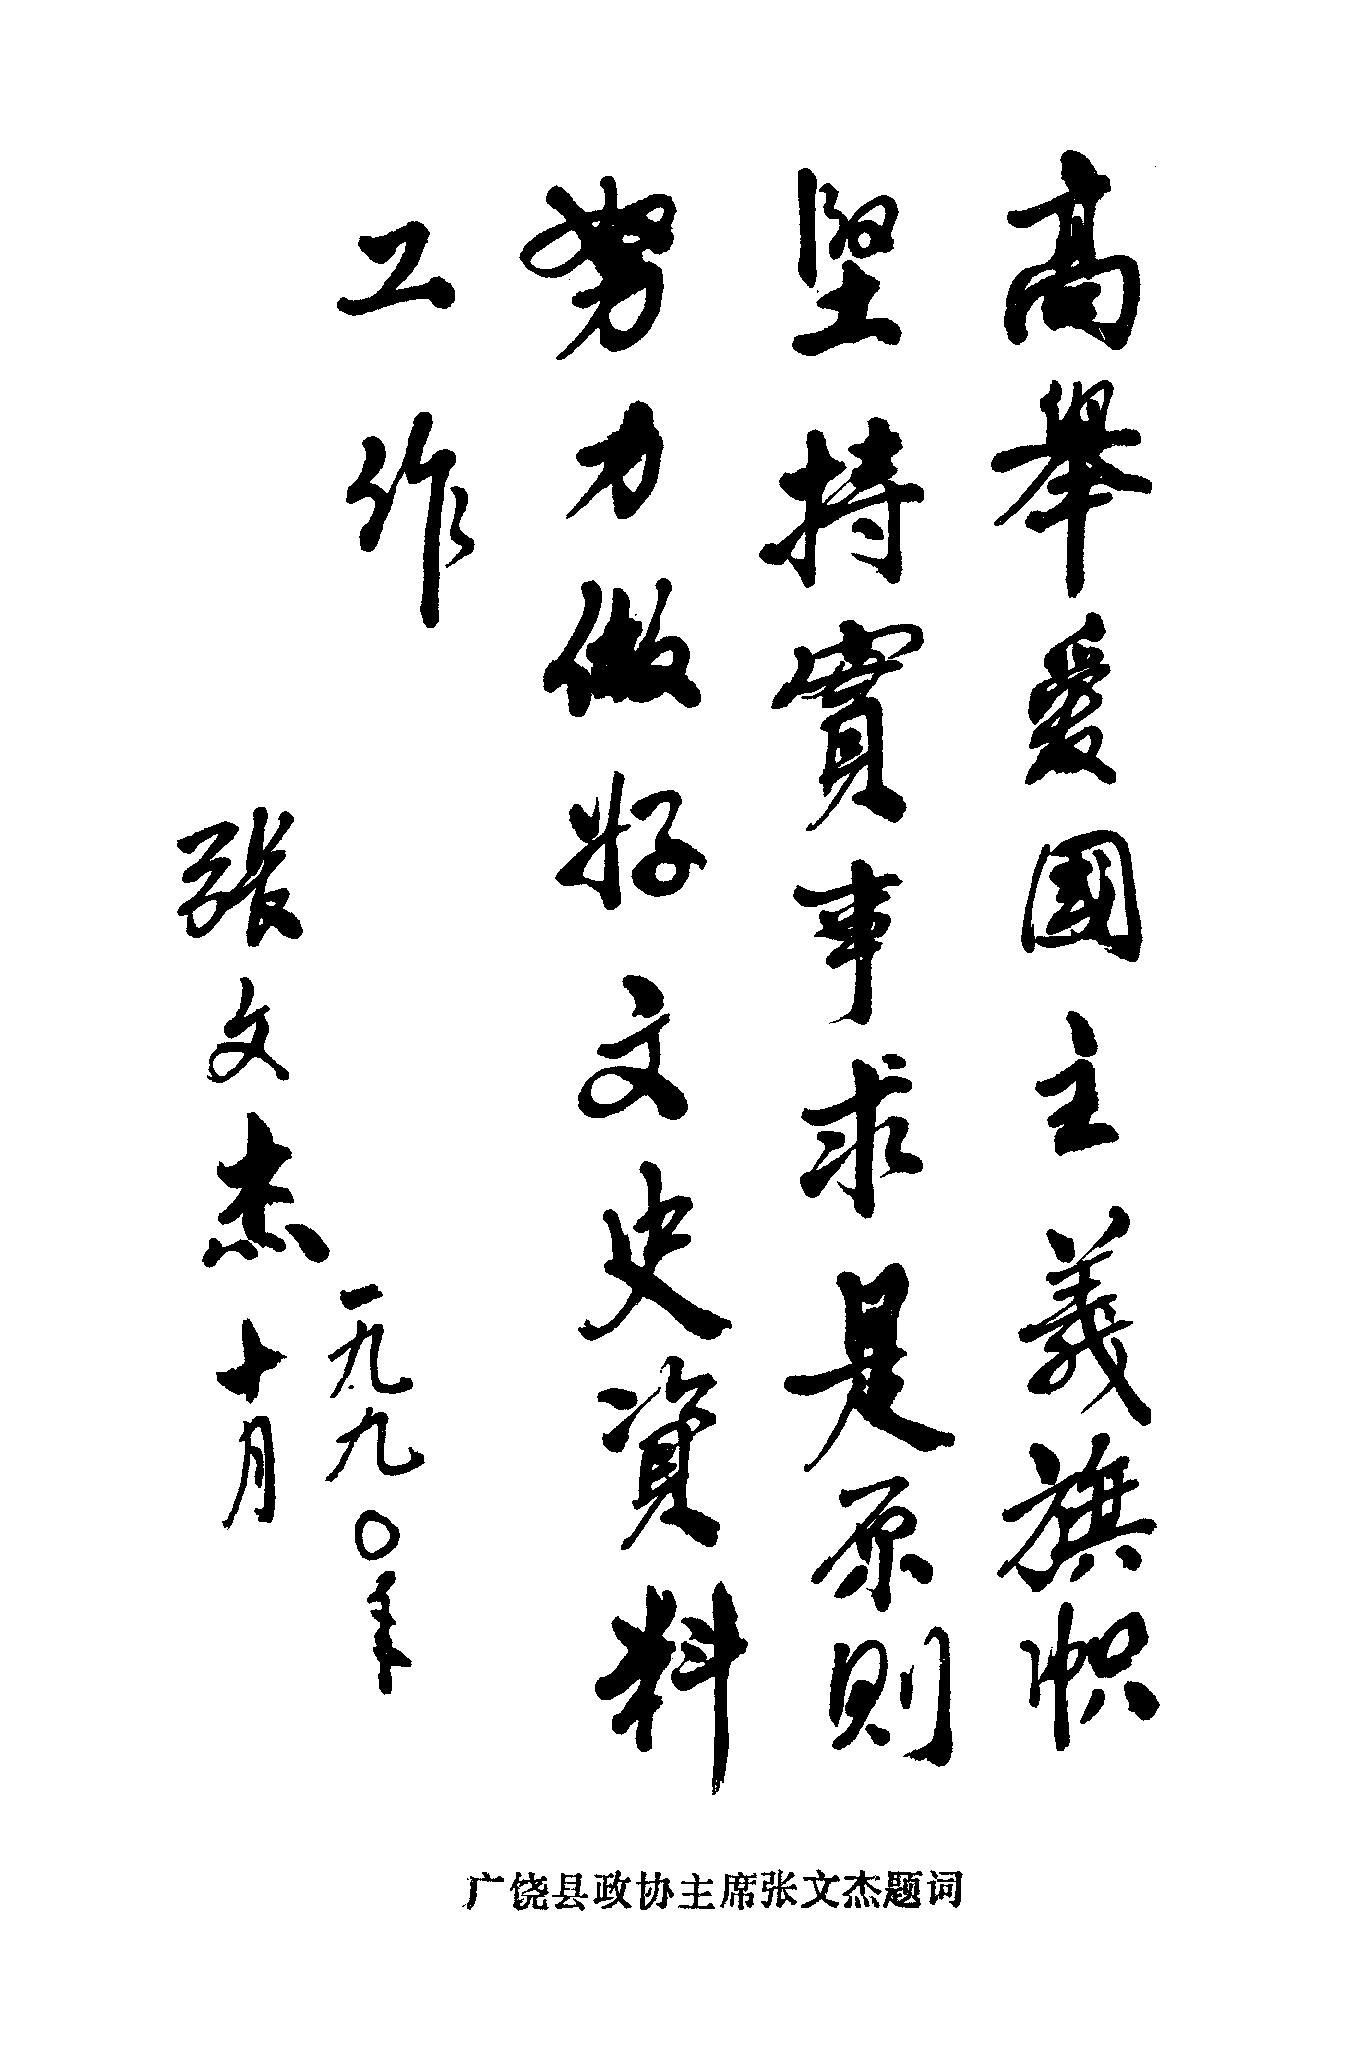 高舉爱國主義旗帜
坚持實事求是原则
努力做好文史資料
工作
張文杰
一九九〇年
十月
广饶县政协主席张文杰题词